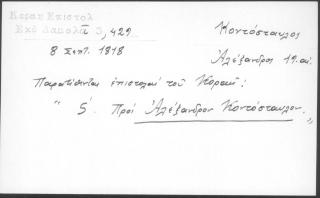 Κοραη Επιστολ
Εκδ Δαμαλᾶ 3, 429
Κοντόσταυλος
8 Σεπτ. 1818
Ἀλέξανδρος 19. αἰ.
Παρατίθενται ἐπιστολαὶ τοῦ Κοραῆ:
" 5. Πρὸς Ἀλέξανδρον Κοντόσταυλον. "